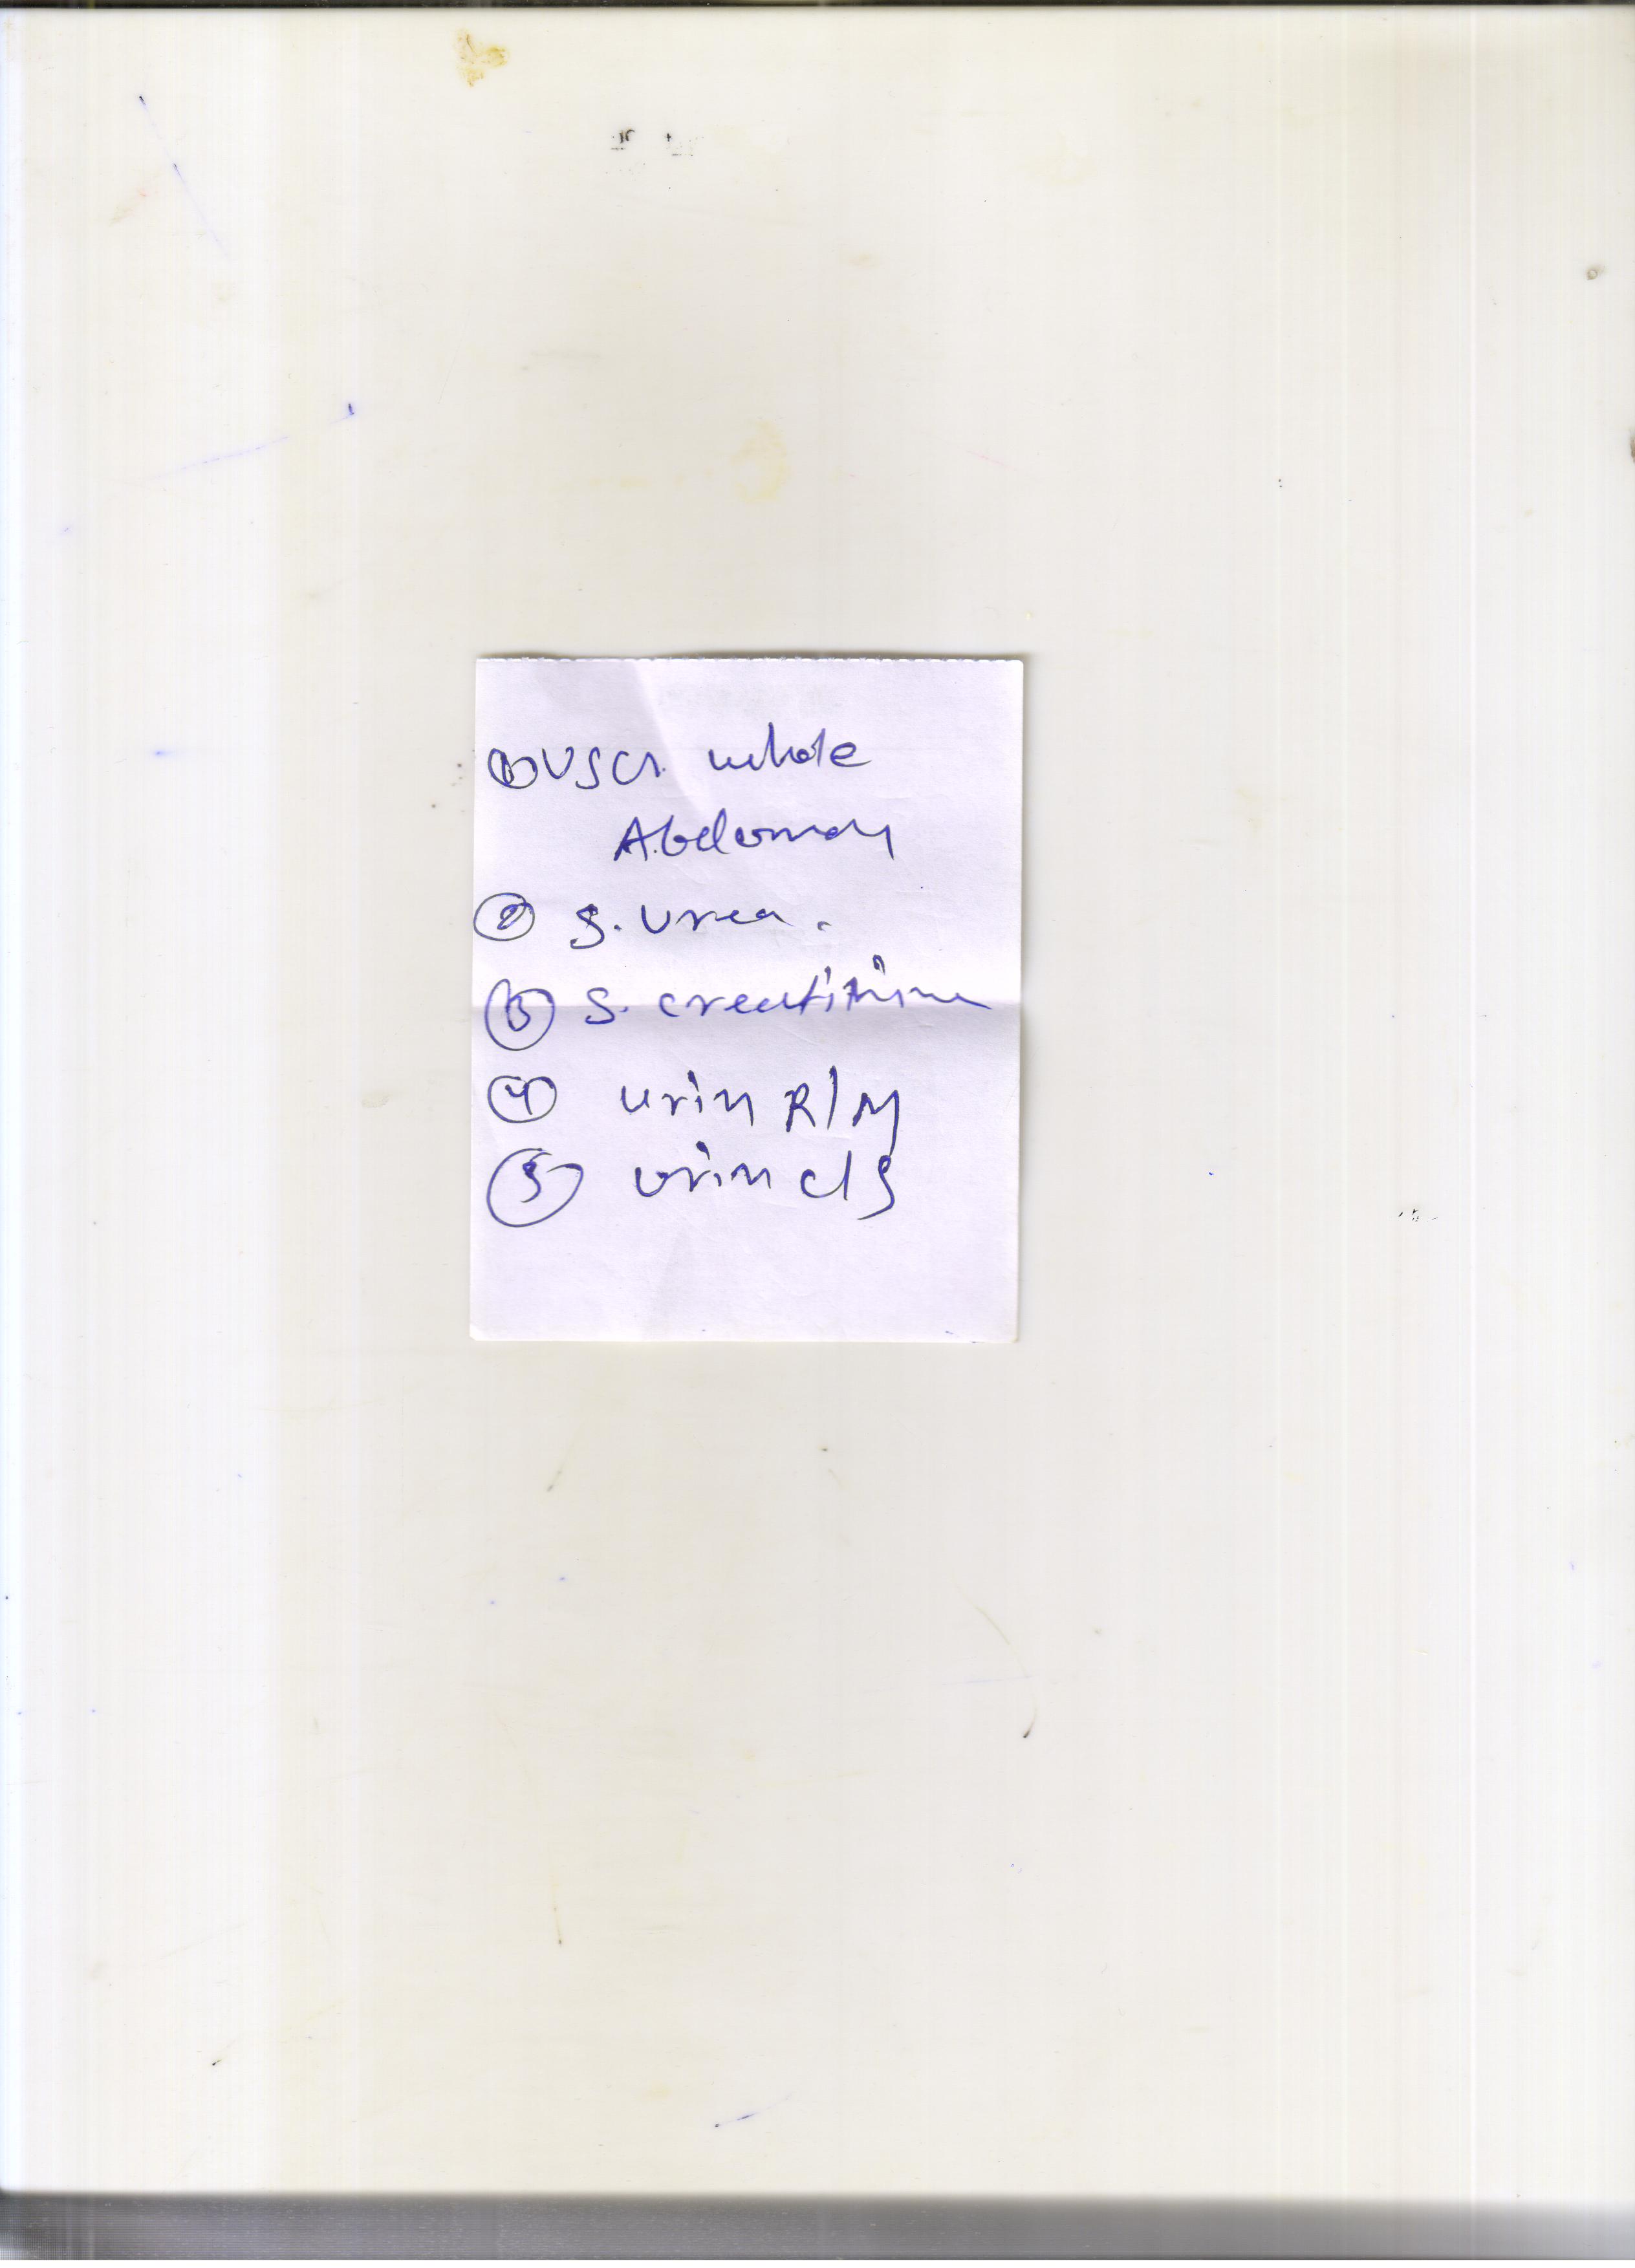 ① USG. whole
Abdomen
② S. Urea.
③ S. creatinine
④ urin R/M
⑤ urin c/s